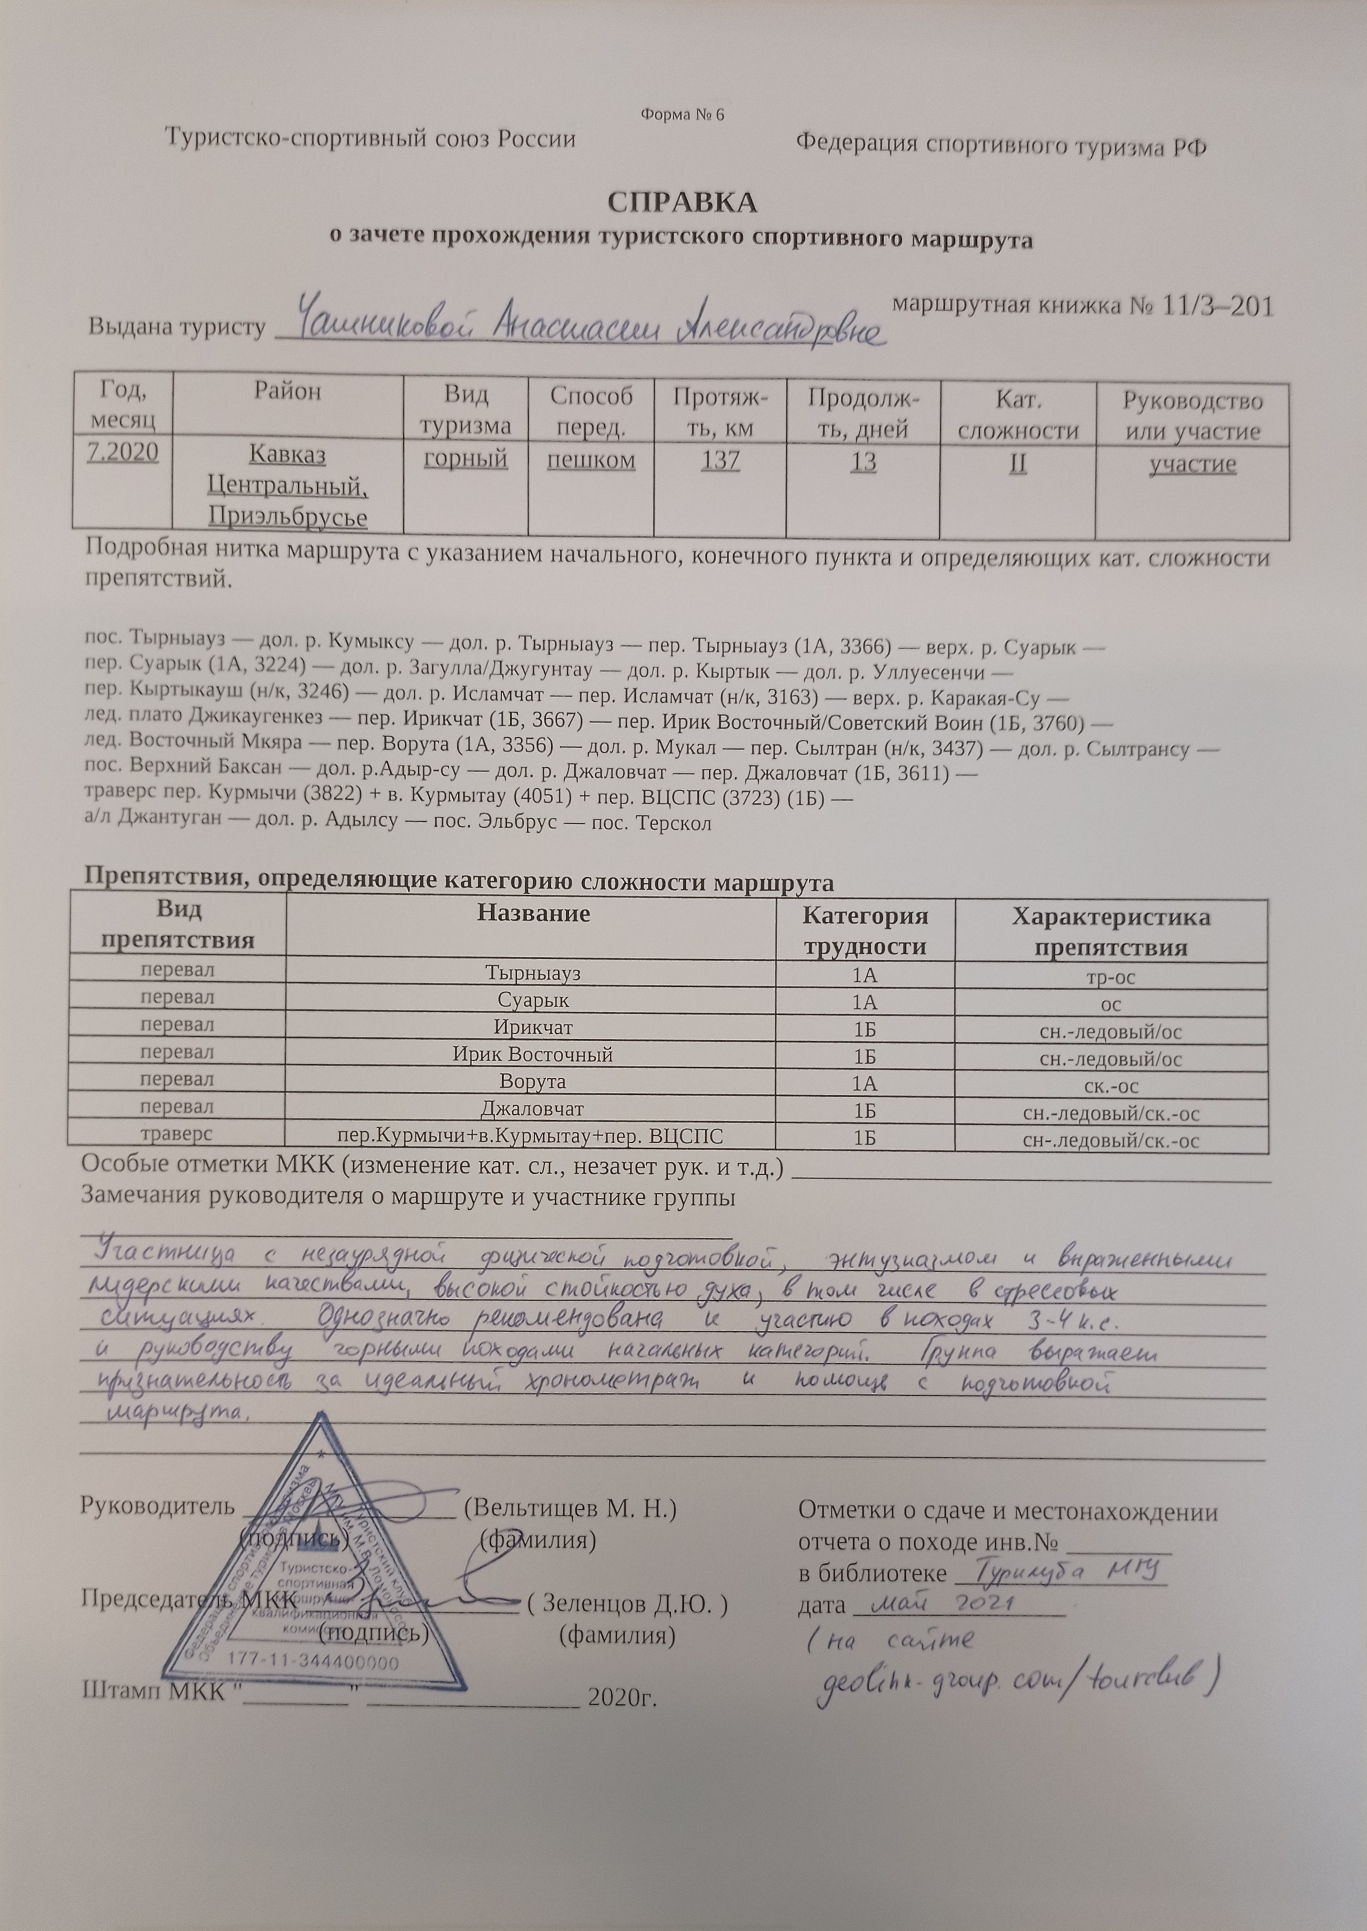 Форма № 6
Туристско-спортивный союз России Федерация спортивного туризма РФ
СПРАВКА
о зачете прохождения туристского спортивного маршрута
маршрутная книжка № 11/3–201
Выдана туристу Чашниковой Анастасии Александровне
Год, месяц Район Вид туризма Способ перед. Протяж-ть, км Продолж-ть, дней Кат. сложности Руководство или участие
7.2020 Кавказ Центральный, Приэльбрусье горный пешком 137 13 II участие
Подробная нитка маршрута с указанием начального, конечного пункта и определяющих кат. сложности
препятствий.
пос. Тырныауз — дол. р. Кумыксу — дол. р. Тырныауз — пер. Тырныауз (1А, 3366) — верх. р. Суарык —
пер. Суарык (1А, 3224) — дол. р. Загулла/Джугунтау — дол. р. Кыртык — дол. р. Уллуесенчи —
пер. Кыртыкауш (н/к, 3246) — дол. р. Исламчат — пер. Исламчат (н/к, 3163) — верх. р. Каракая-Су —
лед. плато Джикаугенкез — пер. Ирикчат (1Б, 3667) — пер. Ирик Восточный/Советский Воин (1Б, 3760) —
лед. Восточный Мкяра — пер. Ворута (1А, 3356) — дол. р. Мукал — пер. Сылтран (н/к, 3437) — дол. р. Сылтрансу —
пос. Верхний Баксан — дол. р.Адыр-су — дол. р. Джаловчат — пер. Джаловчат (1Б, 3611) —
траверс пер. Курмычи (3822) + в. Курмытау (4051) + пер. ВЦСПС (3723) (1Б) —
а/л Джантуган — дол. р. Адылсу — пос. Эльбрус — пос. Терскол
Препятствия, определяющие категорию сложности маршрута
Вид препятствия Название Категория трудности Характеристика препятствия
перевал Тырныауз 1А тр-ос
перевал Суарык 1А ос
перевал Ирикчат 1Б сн.-ледовый/ос
перевал Ирик Восточный 1Б сн.-ледовый/ос
перевал Ворута 1А ск.-ос
перевал Джаловчат 1Б сн.-ледовый/ск.-ос
траверс пер.Курмычи+в.Курмытау+пер. ВЦСПС 1Б сн-.ледовый/ск.-ос
Особые отметки МКК (изменение кат. сл., незачет рук. и т.д.)
Замечания руководителя о маршруте и участнике группы
Участница с незаурядной физической подготовкой, энтузиазмом и выраженными
лидерскими качествами, высокой стойкостью духа, в том числе в стрессовых
ситуациях. Однозначно рекомендована к участию в походах 3-4 к.с.
и руководству горными походами начальных категорий. Группа выражает
признательность за идеальный хронометраж и помощь с подготовкой
маршрута.
Руководитель (Вельтищев М. Н.)
(подпись) (фамилия)
Председатель МКК ( Зеленцов Д.Ю. )
(подпись) (фамилия)
Штамп МКК "________" 2020г.
Отметки о сдаче и местонахождении
отчета о походе инв.№
в библиотеке Турклуба МГУ
дата май 2021
(на сайте
geolink-group.com/tourclub)
Туристско-
спортивная
маршрутно-
квалификационная
комиссия
177-11-344400000